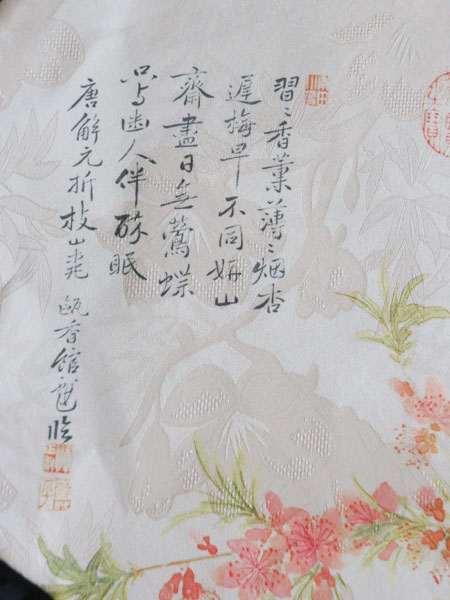 習〻香薰薄〻烟杏
遲梅早不同妍山
齋盡日無鶯蝶
只与幽人伴醉眠
唐解元折枝山桃 甌香館戲臨